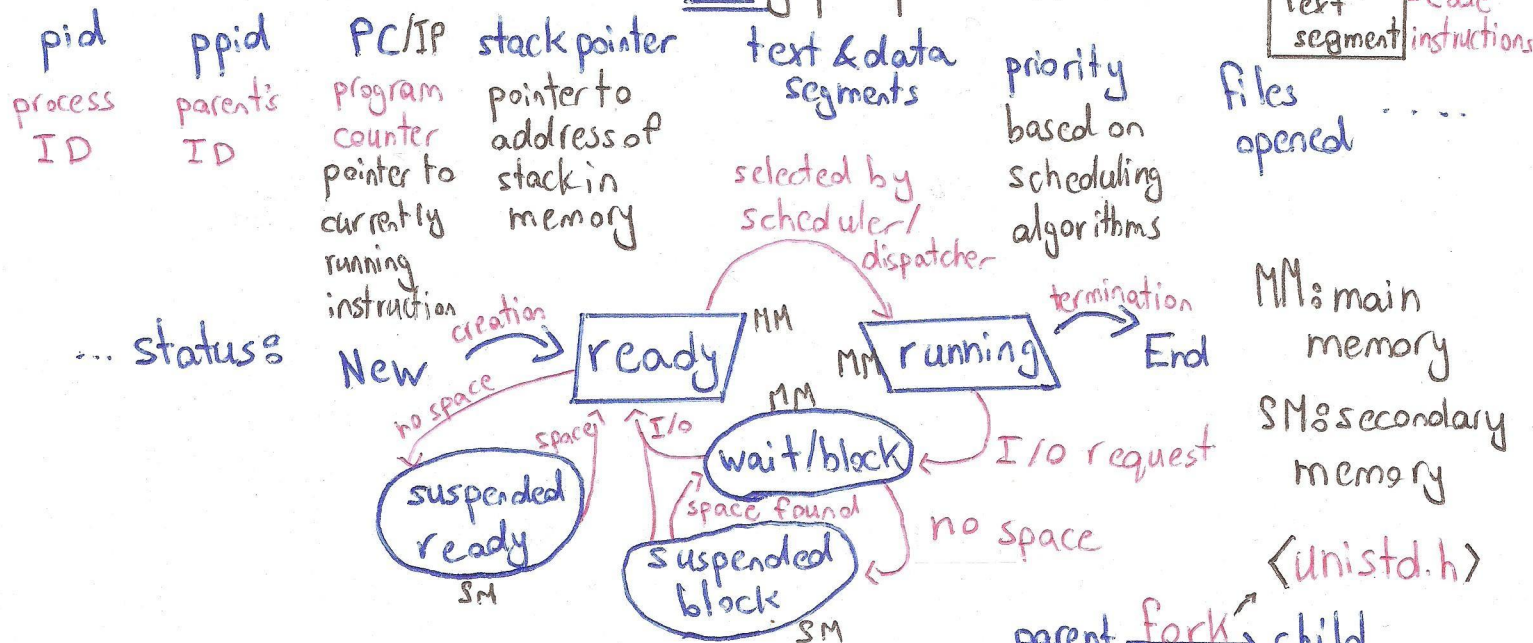 pid
process
ID
ppid
parent's
ID
PC/IP
program
counter
pointer to
currently
running
instruction
stack pointer
pointer to
address of
stack in
memory
text & data
segments
priority
based on
scheduling
algorithms
files
opened
.....
text
segment
instructions
... status:
New
creation
ready
MM
selected by
scheduler/
dispatcher
MM
running
termination
End
no space
suspended
ready
SM
space
I/O
MM
wait/block
I/O request
space found
no space
suspended
block
SM
MM: main
memory
SM: secondary
memory
<unistd.h>
parent fork child